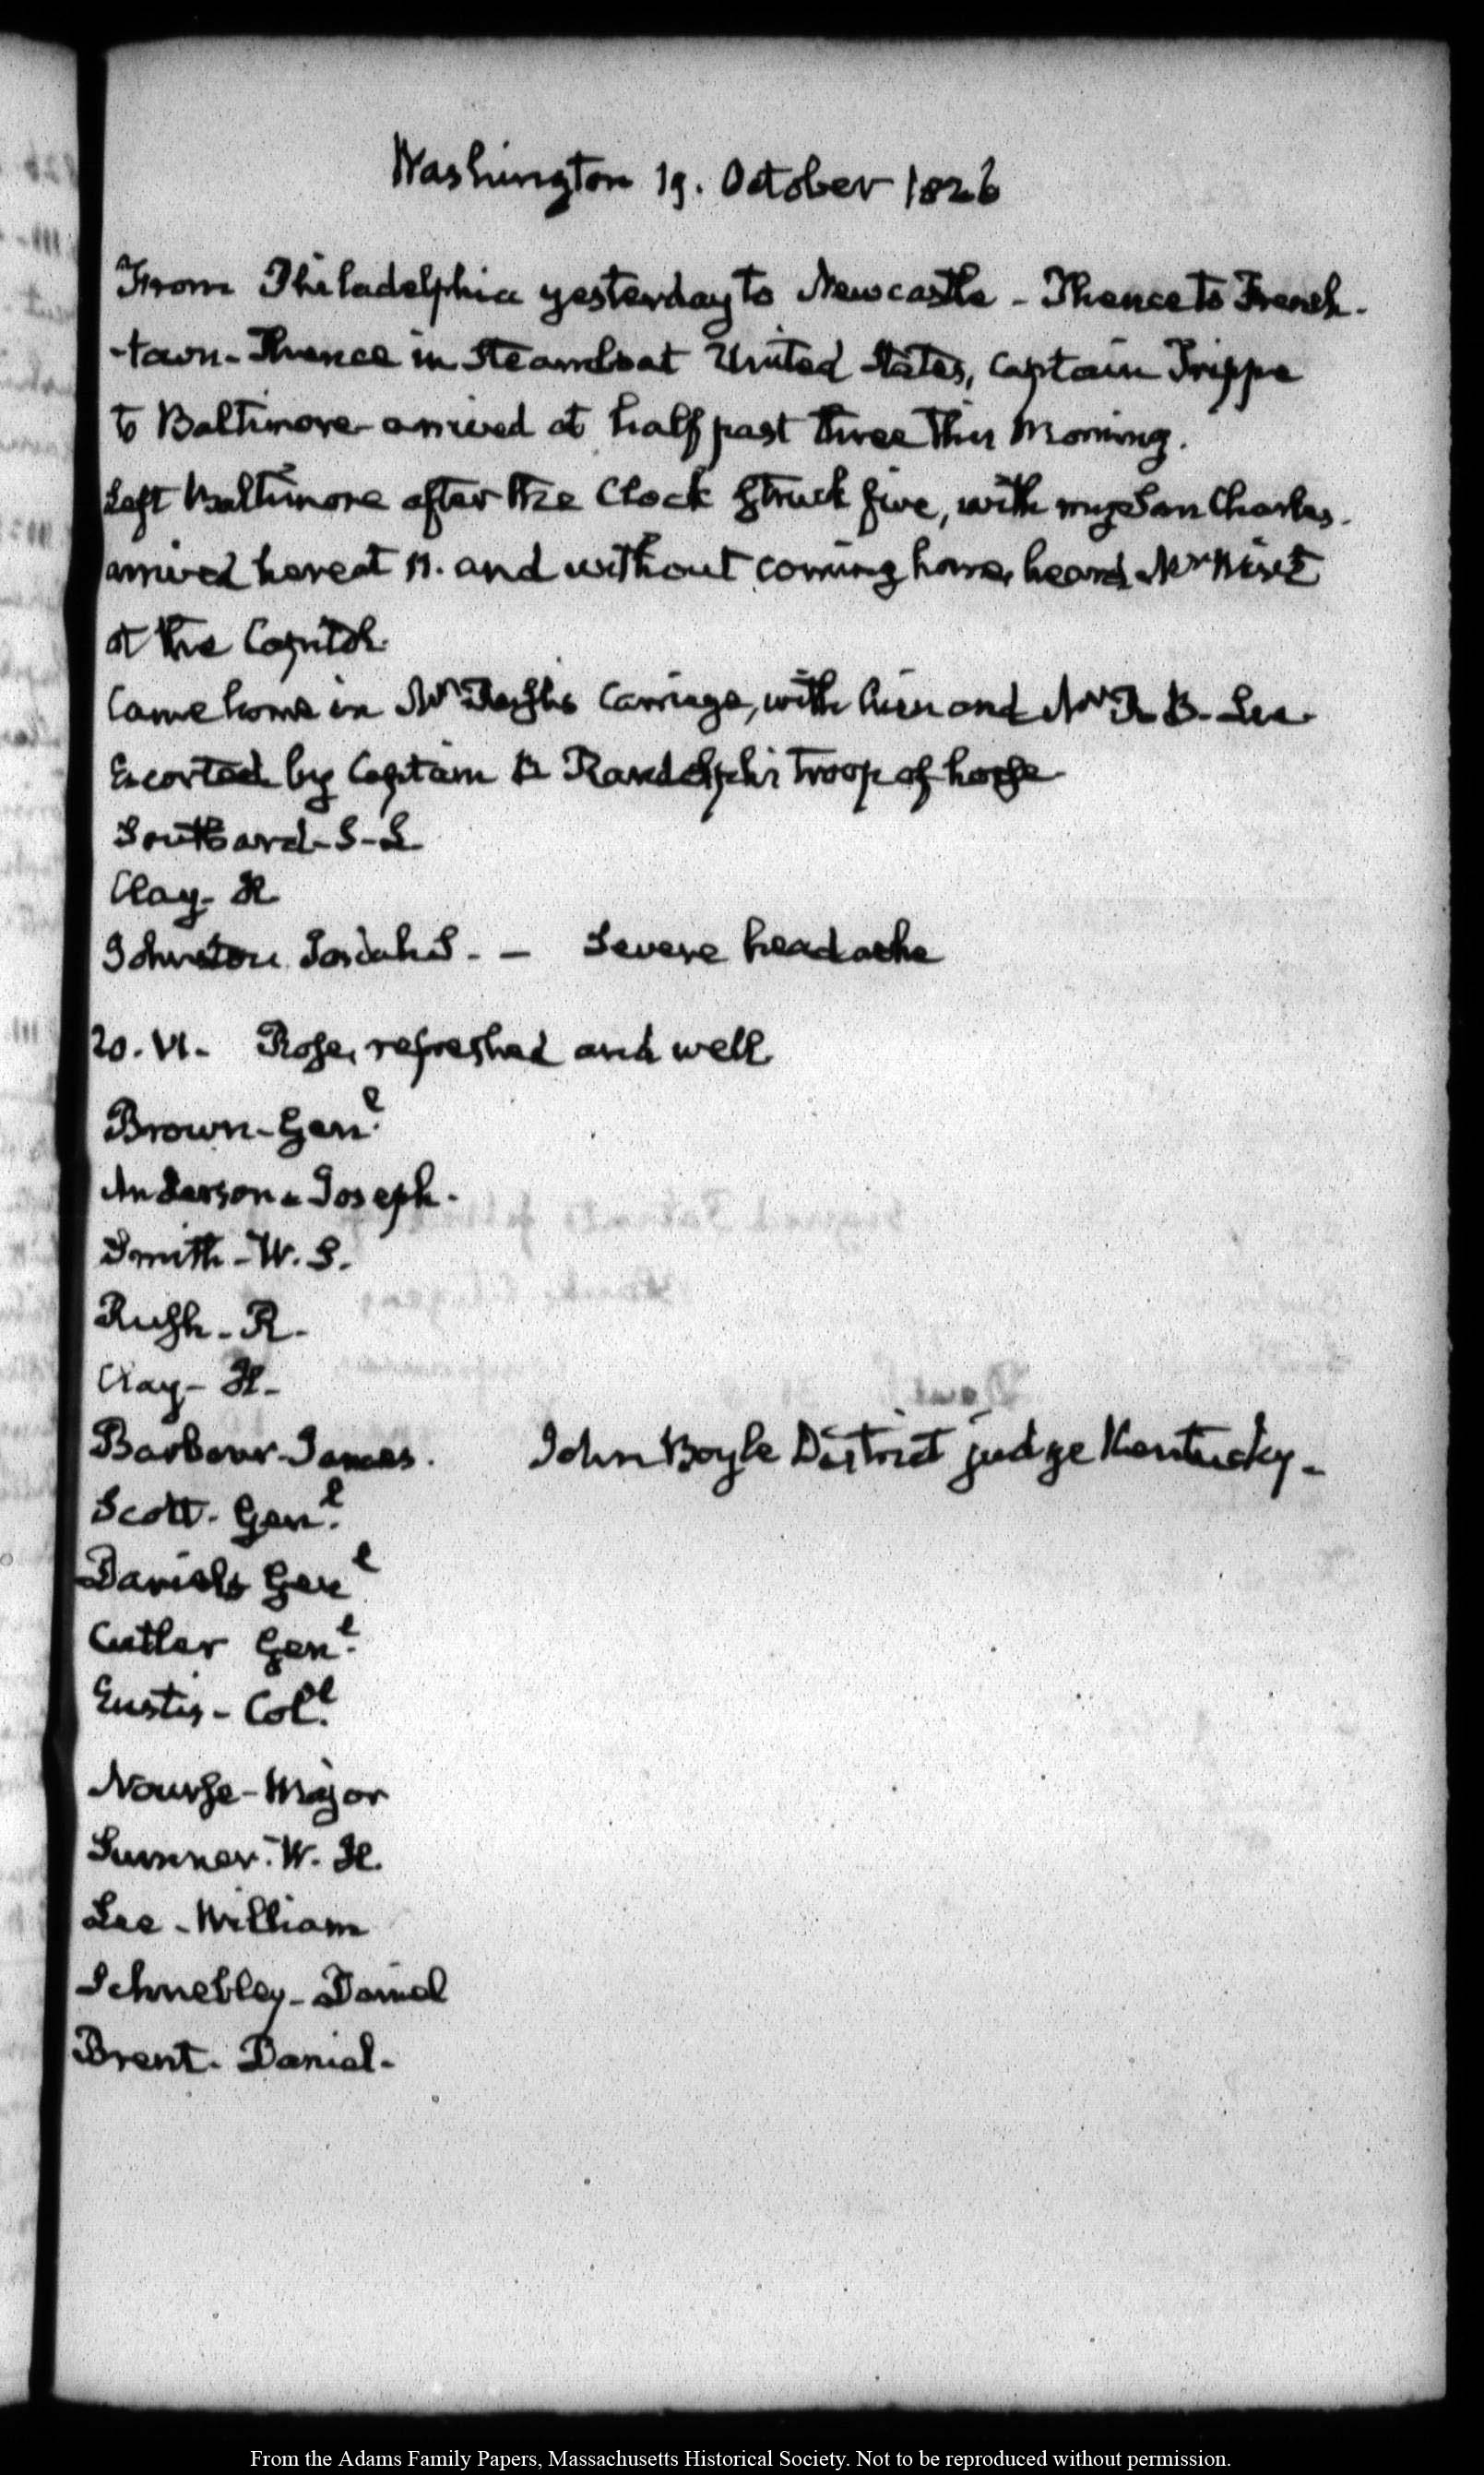 Washington 19. October 1826
From Philadelphia yesterday to Newcastle - Thence to French-
-town - Thence in Steamboat United States, Captain Trippe
to Baltimore arrived at half past three this Morning.
Left Baltimore after the Clock struck five, with my Son Charles.
arrived here at 11. and without coming home, heard Mr Wirt
at the Capitol.
Came home in Mr Rush's Carriage, with him and Mr R. B. Lee
Escorted by Captain B Randolph's troop of horse
Southard - S - L
Clay - H
Johnston Josiah S. - Severe headache
20. VI. Rose, refreshed and well
Brown - Genl.
Anderson - Joseph.
Smith - W. S.
Rush - R.
Clay - H -
Barbour - James. John Boyle District judge Kentucky -
Scott - Genl.
Daniels Genl
Cutler Genl.
Eustis - Coll.
Nourse - Major
Sumner. W. H.
Lee - William
Schnebley - Daniel
Brent - Daniel -
From the Adams Family Papers, Massachusetts Historical Society. Not to be reproduced without permission.